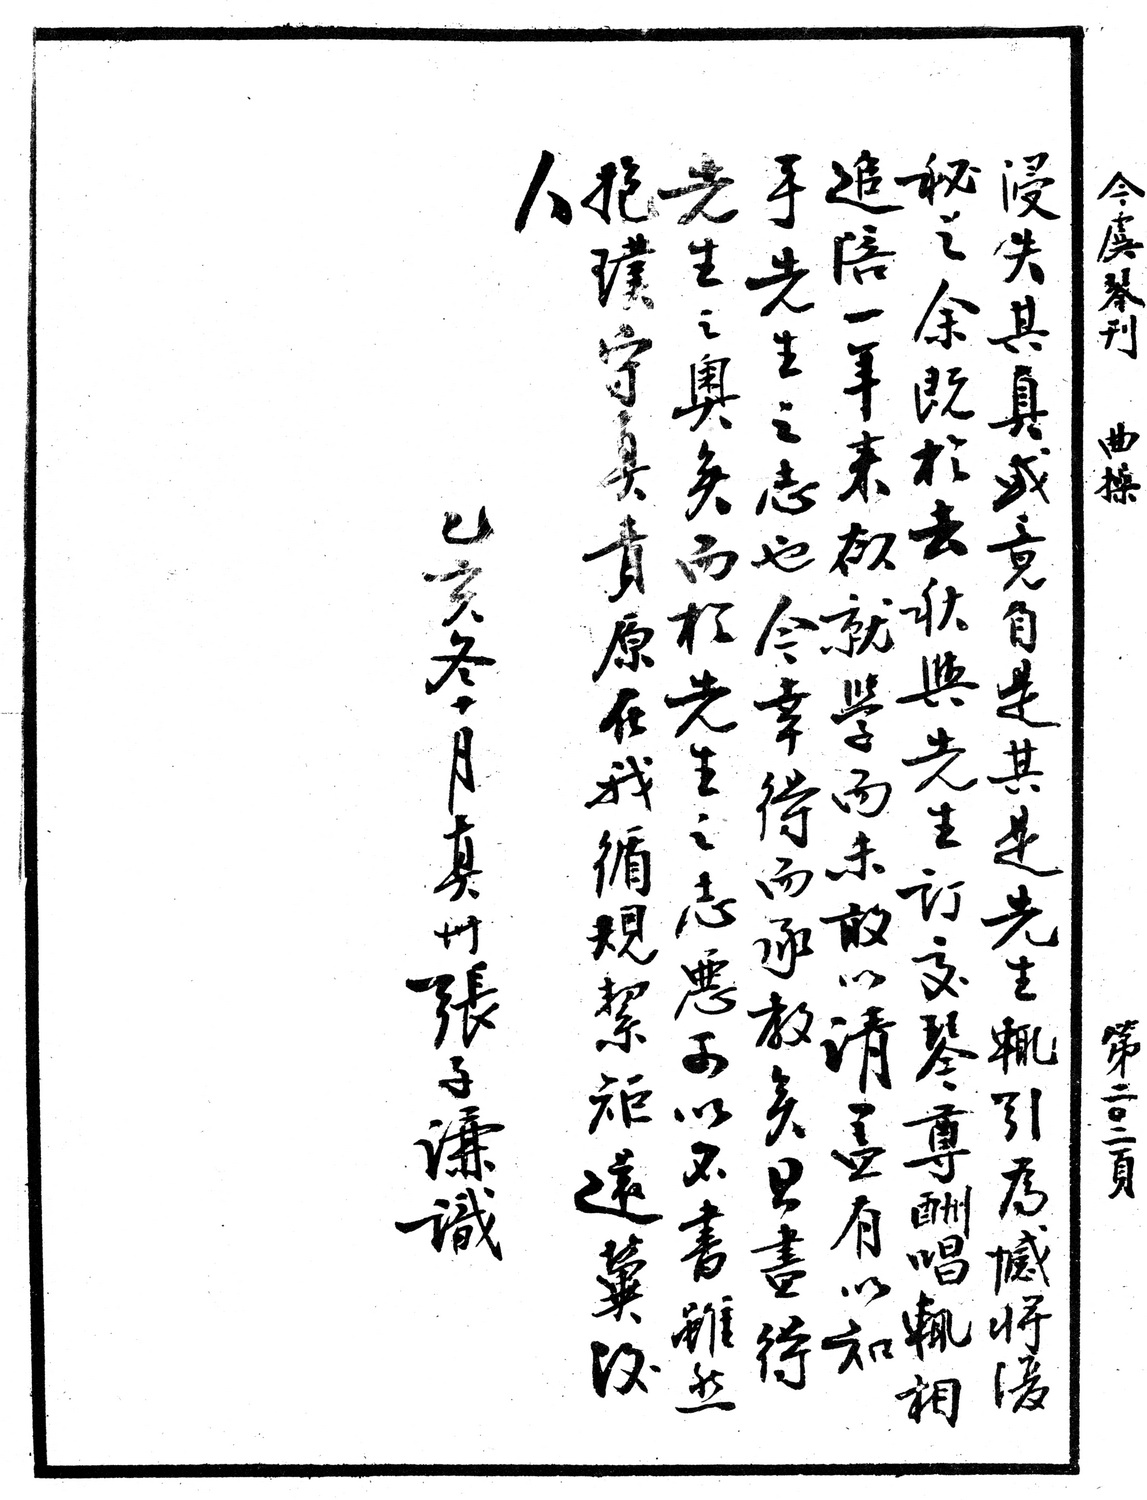 今虞琴刊　曲操　第二〇二頁
浸失其真或竟自是其是先生輒引為憾將湲
秘之余既於去秋與先生訂交琴尊酬唱輒相
追陪一年來欲就學而未敢以請蓋有以知
乎先生之志也今幸得而承教矣且盡得
先生之奧矣而於先生之志惡可以不書雖然
抱璞守真責原在我循規絜矩還冀後
人
乙亥冬十月真州張子謙識